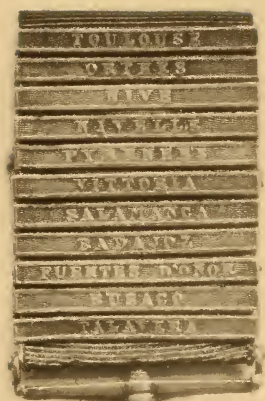 TOULOUSE
ORTHES
NIVE
NIVELLE
PYRENEES
VITTORIA
SALAMANCA
BADAJOZ
FUENTES D'ONOR
BUSACO
TALAVERA